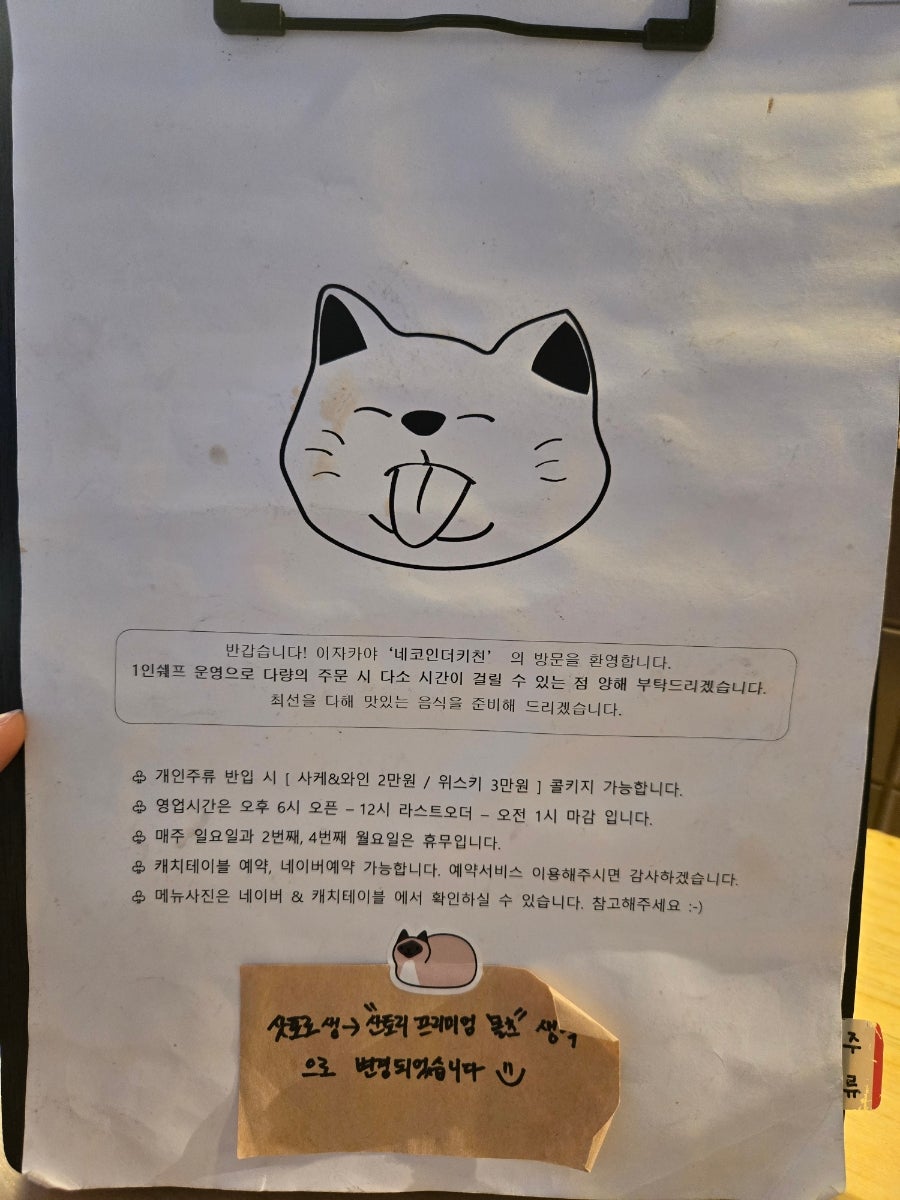 반갑습니다! 이자카야 ‘네코인더키친’ 의 방문을 환영합니다.
1인쉐프 운영으로 다량의 주문 시 다소 시간이 걸릴 수 있는 점 양해 부탁드리겠습니다.
최선을 다해 맛있는 음식을 준비해 드리겠습니다.
♧ 개인주류 반입 시 [ 사케&와인 2만원 / 위스키 3만원 ] 콜키지 가능합니다.
♧ 영업시간은 오후 6시 오픈 – 12시 라스트오더 – 오전 1시 마감 입니다.
♧ 매주 일요일과 2번째, 4번째 월요일은 휴무입니다.
♧ 캐치테이블 예약, 네이버예약 가능합니다. 예약서비스 이용해주시면 감사하겠습니다.
♧ 메뉴사진은 네이버 & 캐치테이블 에서 확인하실 수 있습니다. 참고해주세요 :-)
삿포로 생→ "산토리 프리미엄 몰츠" 생
으로 변경되었습니다
주
류